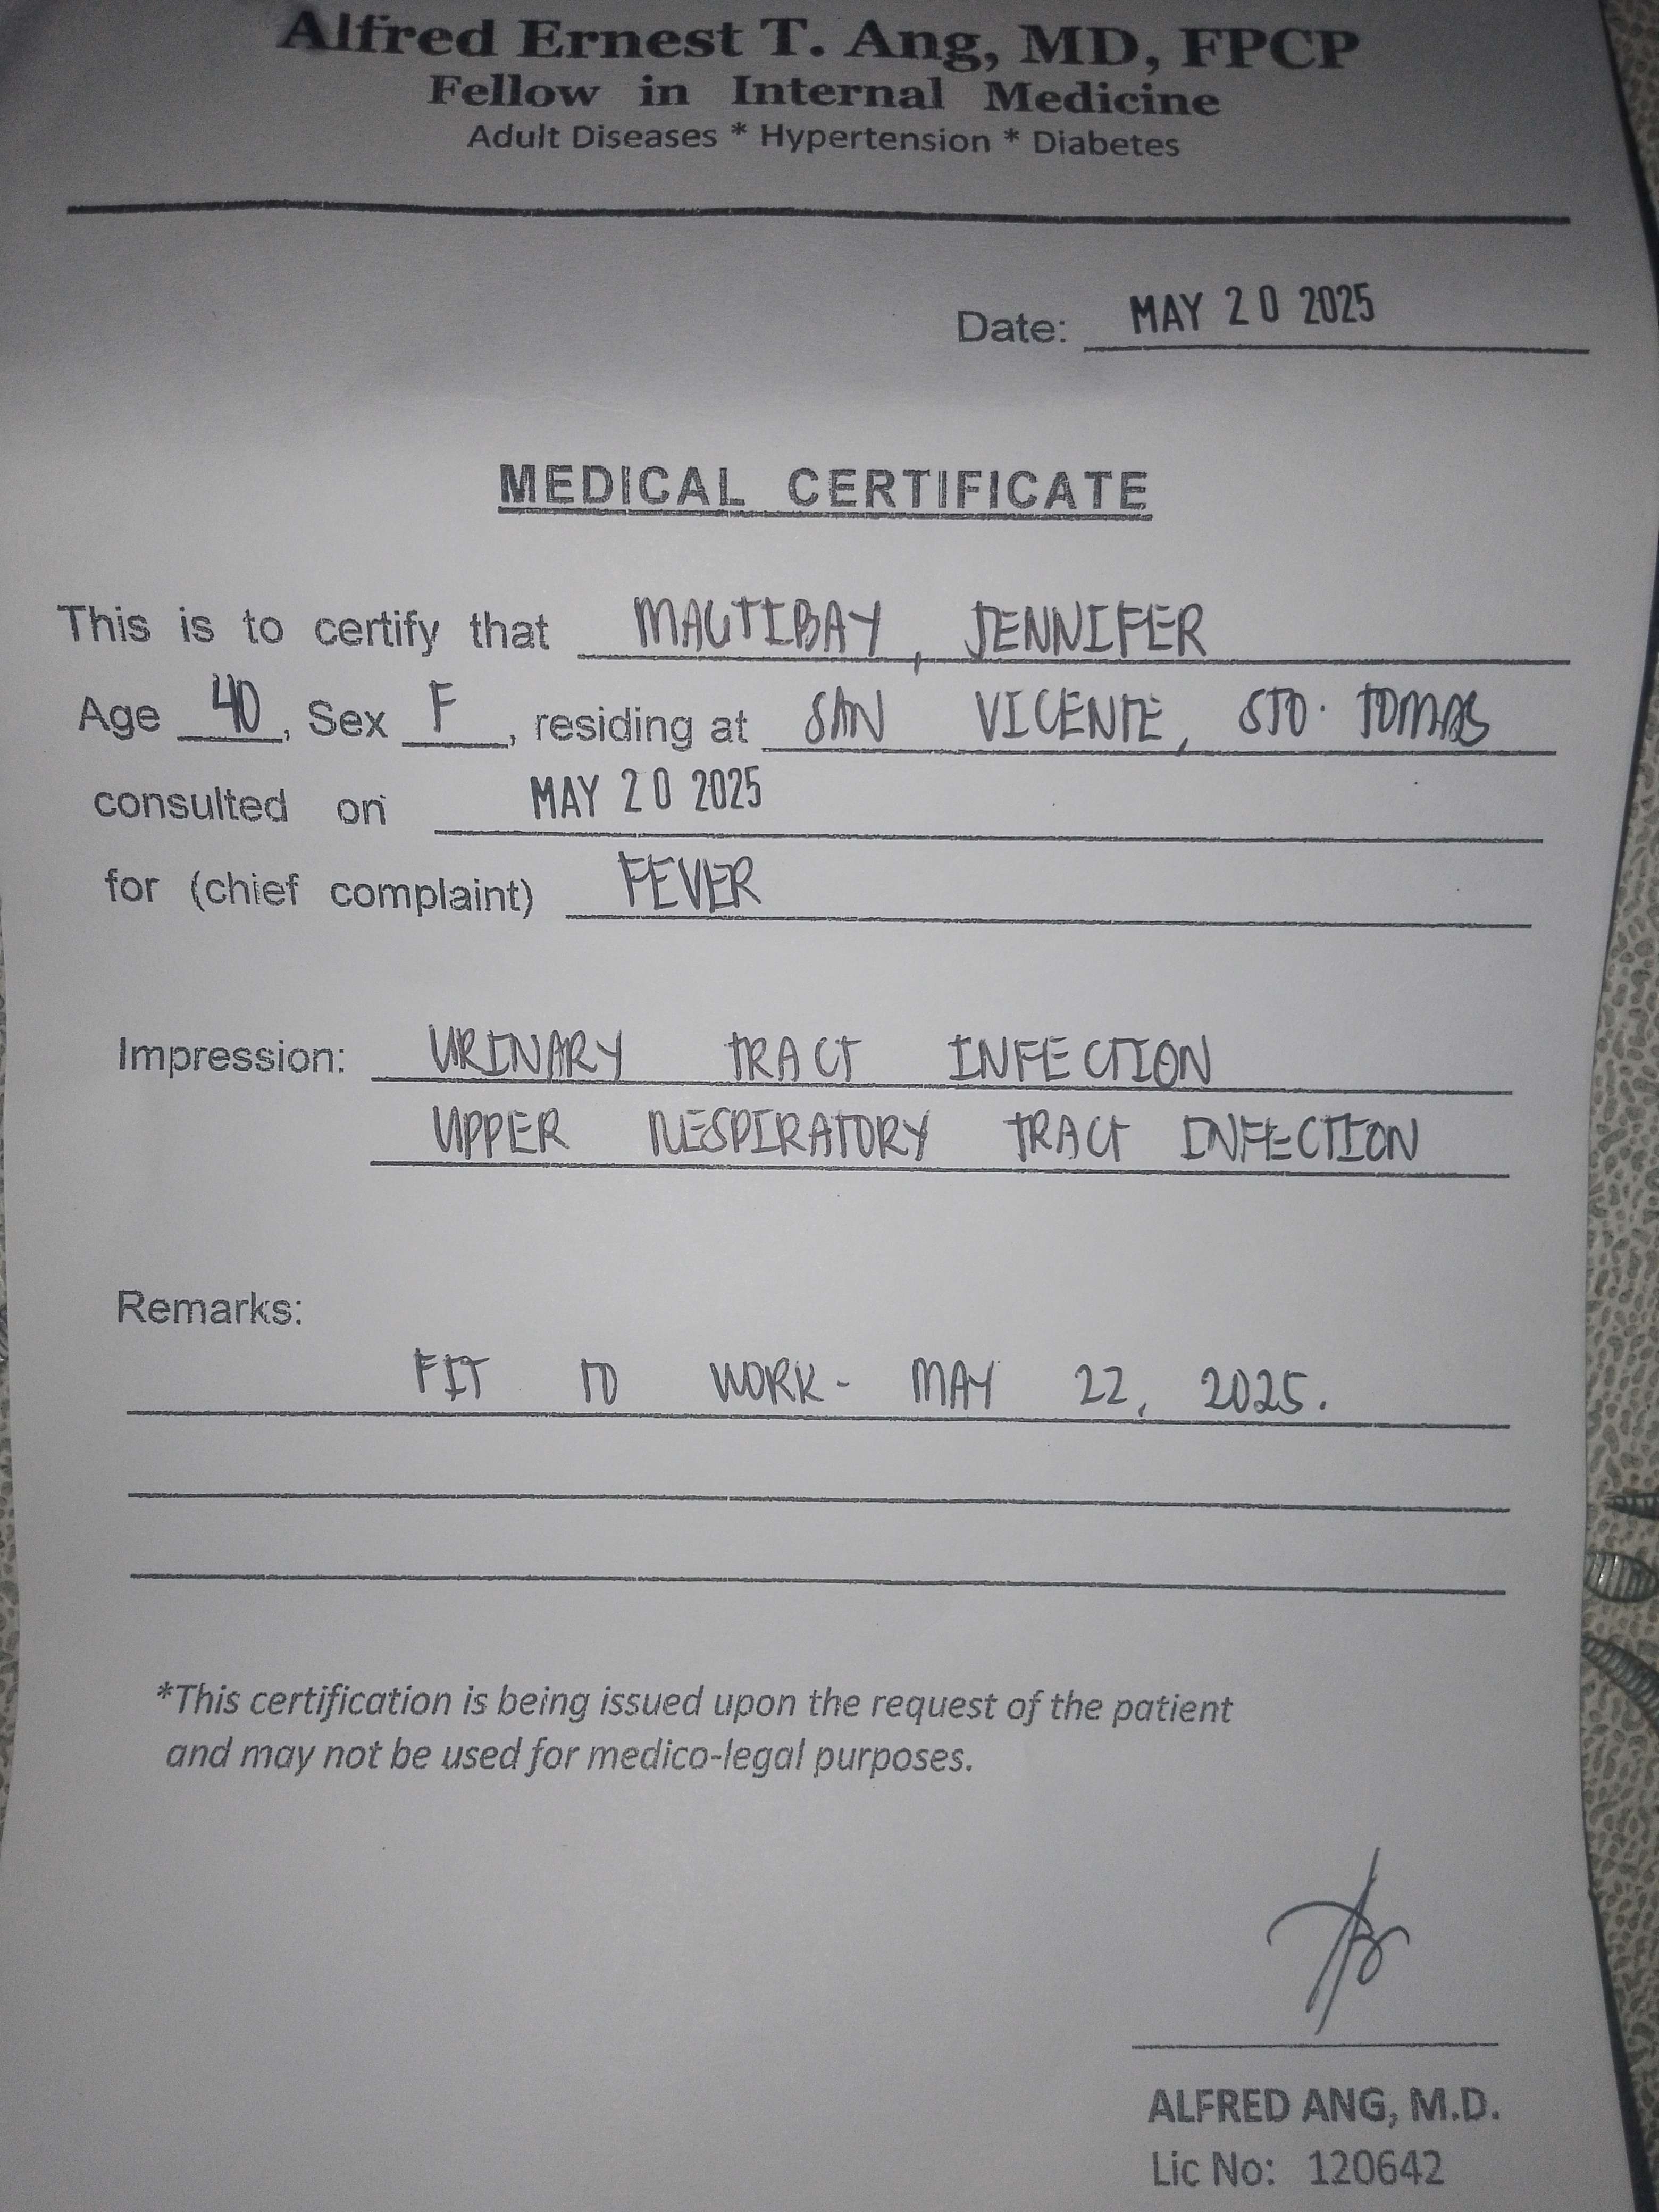 Alfred Ernest T. Ang, MD, FPCP
Fellow in Internal Medicine
Adult Diseases * Hypertension * Diabetes
Date: MAY 20 2025
MEDICAL CERTIFICATE
This is to certify that MAGTIBAY, JENNIFER
Age 40, Sex F, residing at SAN VICENTE, STO. TOMAS
consulted on MAY 20 2025
for (chief complaint) FEVER
Impression: URINARY TRACT INFECTION
UPPER RESPIRATORY TRACT INFECTION
Remarks:
FIT TO WORK - MAY 22, 2025.
*This certification is being issued upon the request of the patient
and may not be used for medico-legal purposes.
ALFRED ANG, M.D.
Lic No: 120642